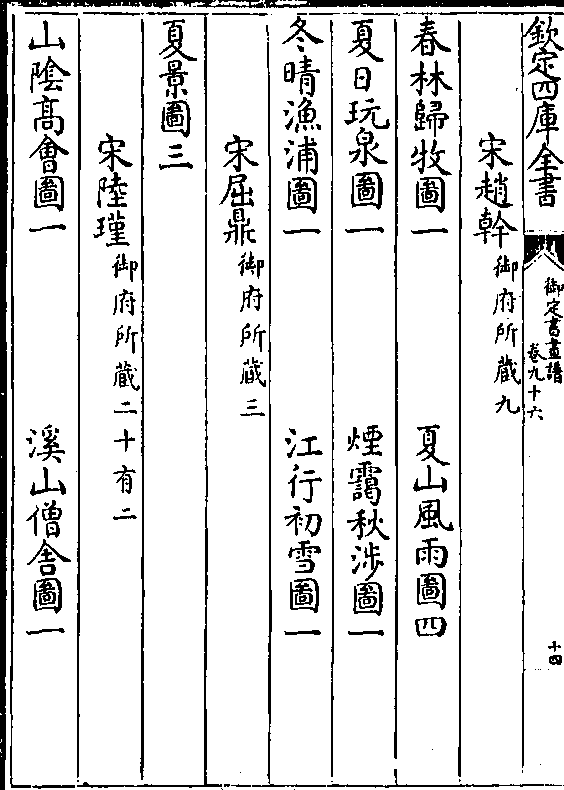 欽定四庫全書
御定書畫譜
卷九十六
十四
宋趙幹御府所藏九
春林歸牧圖一 夏山風雨圖四
夏日玩泉圖一 煙靄秋涉圖一
冬晴漁浦圖一 江行初雪圖一
宋屈鼎御府所藏三
夏景圖三
宋陸瑾御府所藏二十有二
山陰高會圖一 溪山僧舍圖一